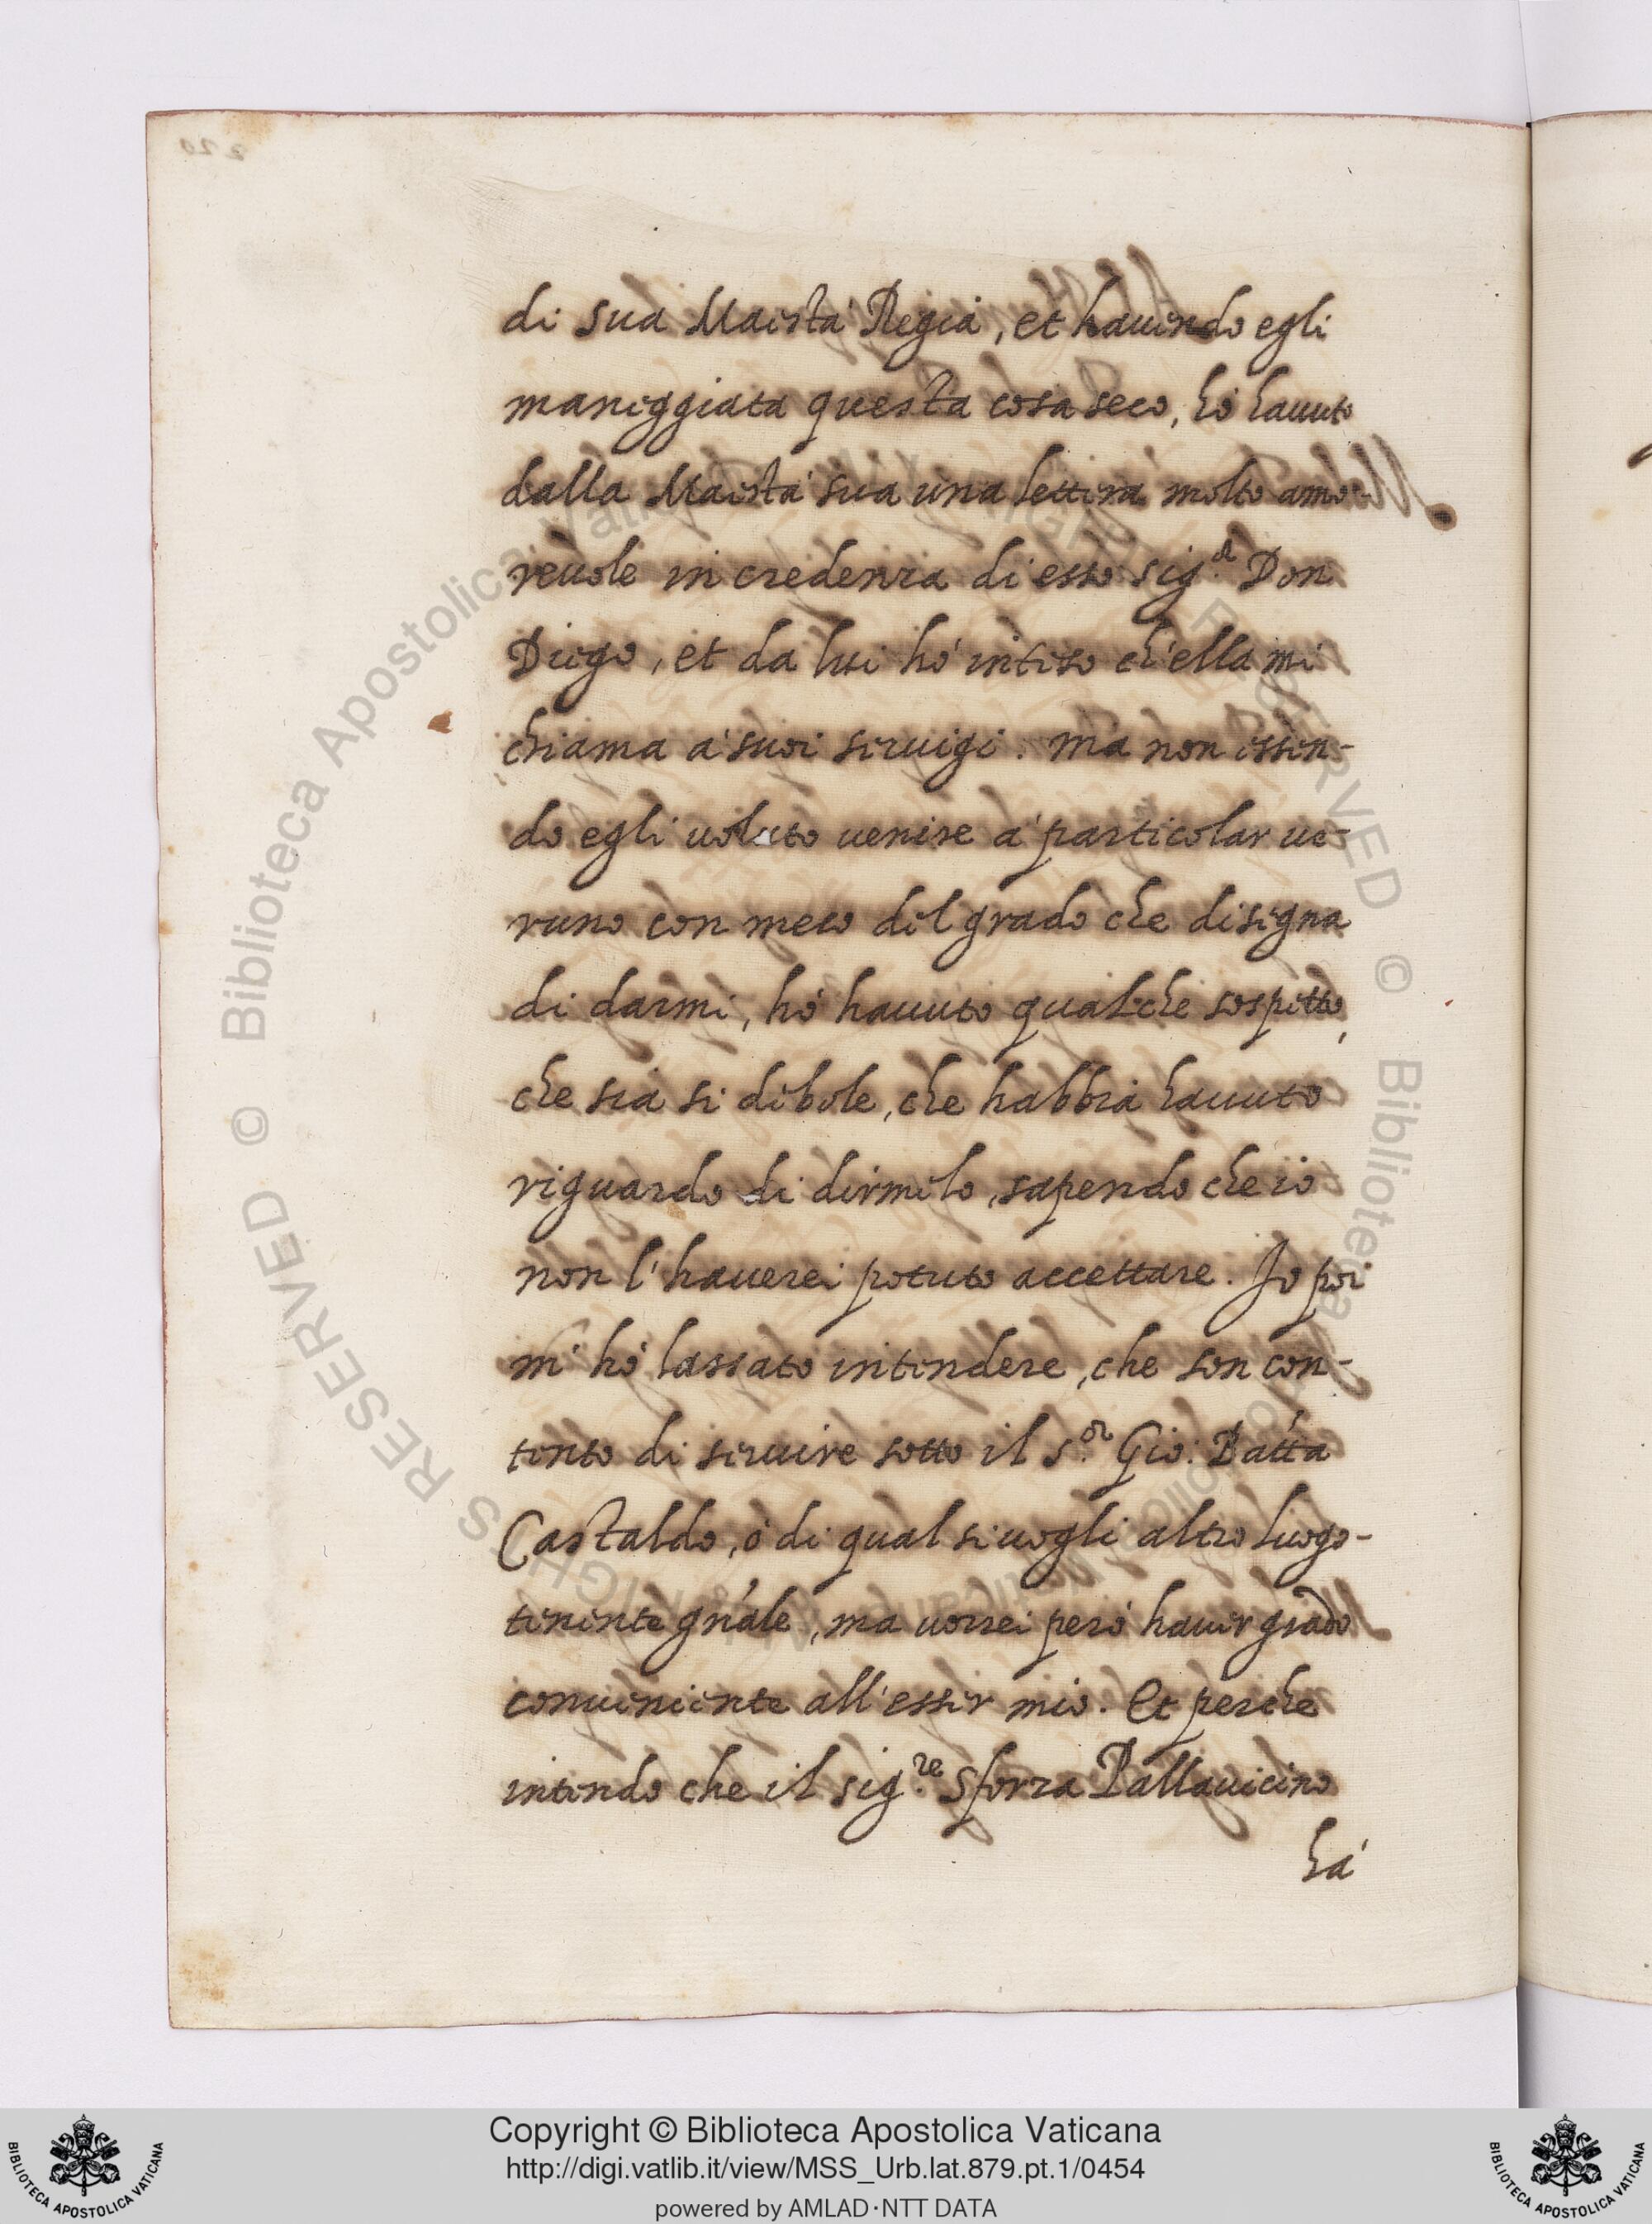 di sua Maestà Regia, et hauendo egli
maneggiata questa cosa seco, hò hauuto
dalla Maestà sua una lettera molto amo-
reuole in credenza di esso sig.r Don
Diego, et da lui hò inteso ch'ella mi
chiama a' suoi seruigi. ma non essen-
do egli uoluto uenire à particolar ue-
runo con meco del grado che disegna
di darmi, hò hauuto qualche sospetto,
che sia si debole, che habbia hauuto
riguardo di dirmelo, sapendo che io
non l'hauerei potuto accettare. Io poi
mi hò lassato intendere, che son con-
tento di seruire sotto il s.or Gio: Batta
Castaldo, ò di qual si uogli altro luogo-
tenente gnãle, ma uorrei però hauer grado
conueniente all'esser mio. Et perche
intendo che il sig.re Sforza Pallauicino
hà
Copyright © Biblioteca Apostolica Vaticana
http://digi.vatlib.it/view/MSS_Urb.lat.879.pt.1/0454
powered by AMLAD·NTT DATA
BIBLIOTECA APOSTOLICA VATICANA
BIBLIOTECA APOSTOLICA VATICANA